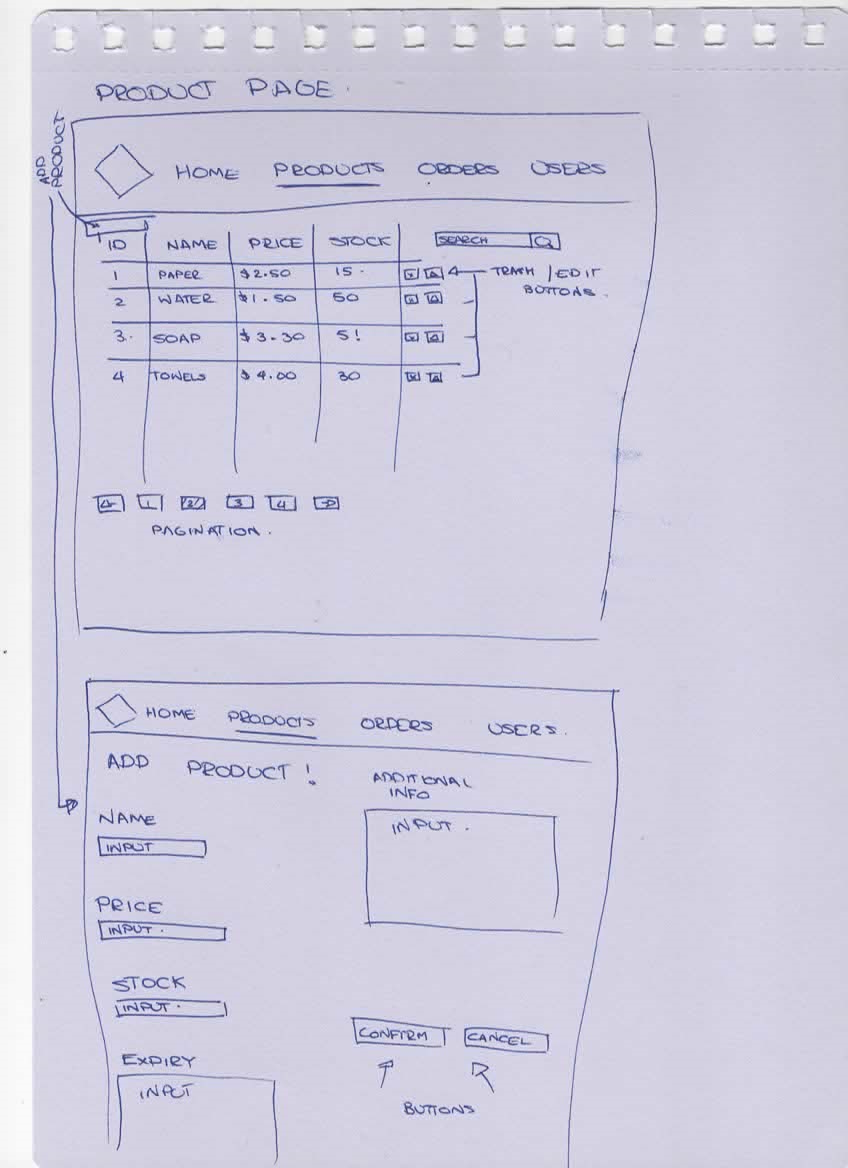 PRODUCT PAGE.
ADD PRODUCT
HOME PRODUCTS ORDERS USERS
ID NAME PRICE STOCK SEARCH
1 PAPER $2.50 15.
TRASH / EDIT
BUTTONS.
2 WATER $1.50 50
3. SOAP $3.30 5!
4 TOWELS $4.00 30
1 2 3 4
PAGINATION.
HOME PRODUCTS ORDERS USERS.
ADD PRODUCT!
ADDITIONAL
INFO
INPUT.
NAME
INPUT
PRICE
INPUT.
STOCK
INPUT.
CONFIRM CANCEL
EXPIRY
INPUT
BUTTONS